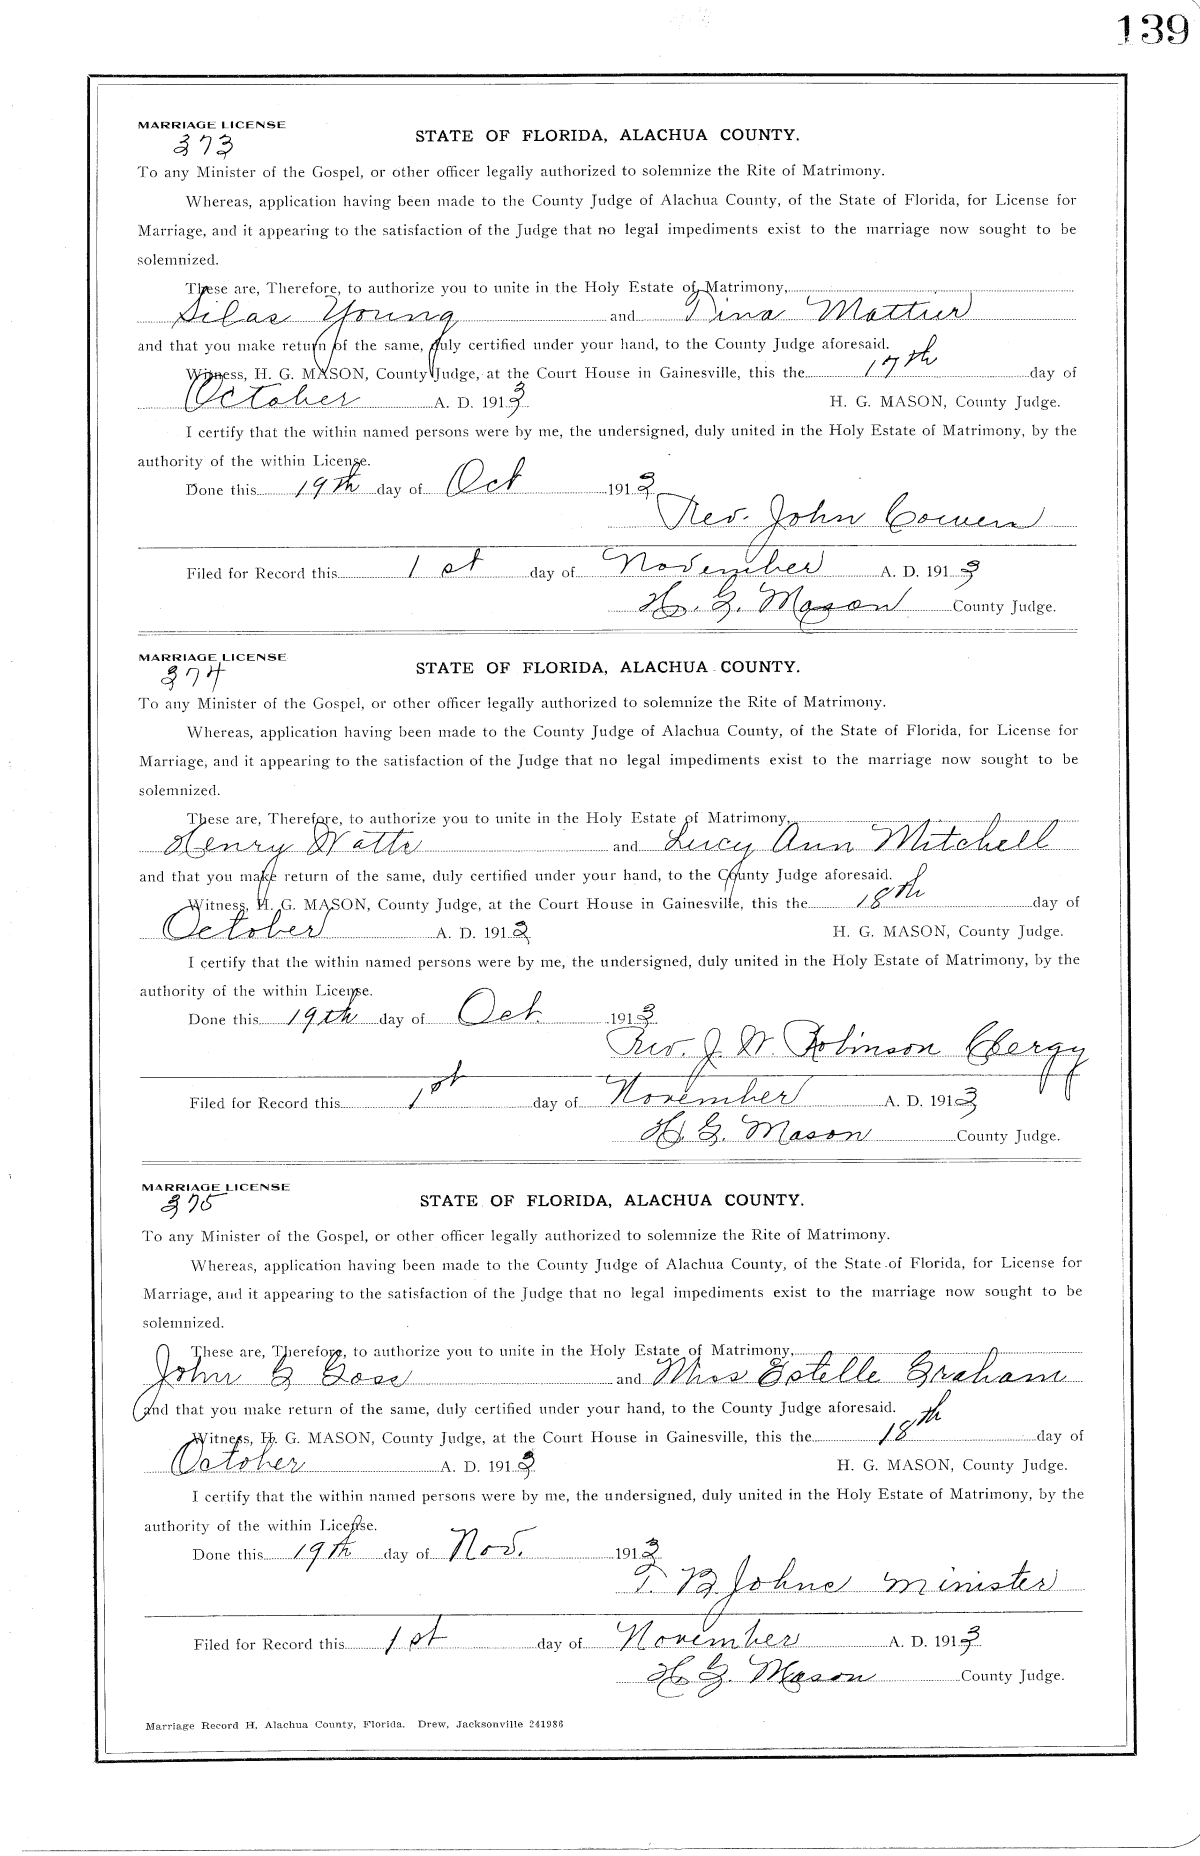 139
MARRIAGE LICENSE
373
STATE OF FLORIDA, ALACHUA COUNTY.
To any Minister of the Gospel, or other officer legally authorized to solemnize the Rite of Matrimony.
Whereas, application having been made to the County Judge of Alachua County, of the State of Florida, for License for
Marriage, and it appearing to the satisfaction of the Judge that no legal impediments exist to the marriage now sought to be
solemnized.
These are, Therefore, to authorize you to unite in the Holy Estate of Matrimony,
Silas Young and Tina Mattier
and that you make return of the same, duly certified under your hand, to the County Judge aforesaid.
Witness, H. G. MASON, County Judge, at the Court House in Gainesville, this the 17th day of
October A. D. 1913 H. G. MASON, County Judge.
I certify that the within named persons were by me, the undersigned, duly united in the Holy Estate of Matrimony, by the
authority of the within License.
Done this 19th day of Oct 1913
Rev. John Cowen
Filed for Record this 1st day of November A. D. 1913
H. G. Mason County Judge.
MARRIAGE LICENSE
374
STATE OF FLORIDA, ALACHUA COUNTY.
To any Minister of the Gospel, or other officer legally authorized to solemnize the Rite of Matrimony.
Whereas, application having been made to the County Judge of Alachua County, of the State of Florida, for License for
Marriage, and it appearing to the satisfaction of the Judge that no legal impediments exist to the marriage now sought to be
solemnized.
These are, Therefore, to authorize you to unite in the Holy Estate of Matrimony,
Henry Watts and Lucy Ann Mitchell
and that you make return of the same, duly certified under your hand, to the County Judge aforesaid.
Witness, H. G. MASON, County Judge, at the Court House in Gainesville, this the 18th day of
October A. D. 1913 H. G. MASON, County Judge.
I certify that the within named persons were by me, the undersigned, duly united in the Holy Estate of Matrimony, by the
authority of the within License.
Done this 19th day of Oct. 1913
Rev. J. W. Robinson Clergy
Filed for Record this 1st day of November A. D. 1913
H. G. Mason County Judge.
MARRIAGE LICENSE
375
STATE OF FLORIDA, ALACHUA COUNTY.
To any Minister of the Gospel, or other officer legally authorized to solemnize the Rite of Matrimony.
Whereas, application having been made to the County Judge of Alachua County, of the State of Florida, for License for
Marriage, and it appearing to the satisfaction of the Judge that no legal impediments exist to the marriage now sought to be
solemnized.
These are, Therefore, to authorize you to unite in the Holy Estate of Matrimony,
John G Goss and Miss Estelle Graham
and that you make return of the same, duly certified under your hand, to the County Judge aforesaid.
Witness, H. G. MASON, County Judge, at the Court House in Gainesville, this the 18th day of
October A. D. 1913 H. G. MASON, County Judge.
I certify that the within named persons were by me, the undersigned, duly united in the Holy Estate of Matrimony, by the
authority of the within License.
Done this 19th day of Nov. 1913
T. B. Johns minister
Filed for Record this 1st day of November A. D. 1913
H. G. Mason County Judge.
Marriage Record H. Alachua County, Florida. Drew, Jacksonville 241986